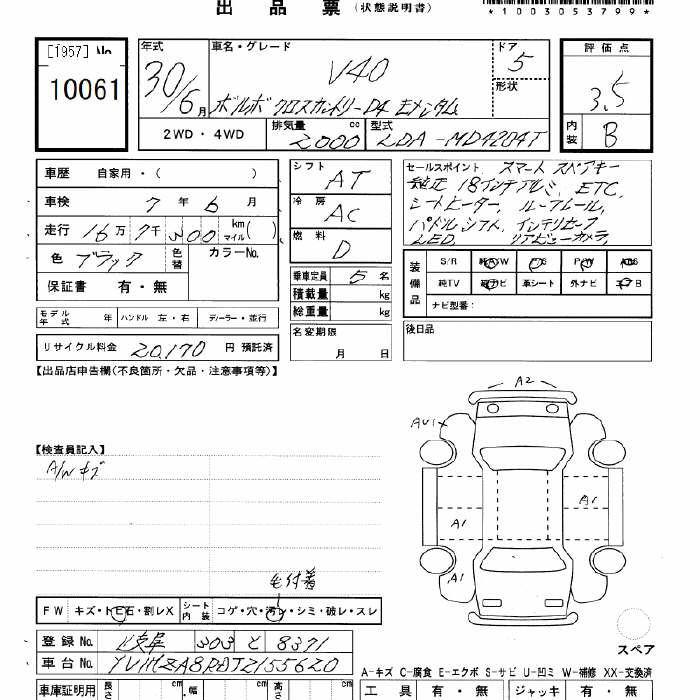 出 品 票 (状態説明書)
*1003053799*
[1957] No
10061
年式 30/6月
車名・グレード
V40
ボルボ クロスカントリーD4 モメンタム
ドア 5
形状
評価点
3.5
内装 B
2WD・4WD
排気量 2000 cc
型式 LDA-MD4204T
車歴 自家用・( )
車検 7年 6月
走行 16万7千300 km マイル( )
色 ブラック 色替 カラーNo.
保証書 有・無
シフト AT
冷房 AC
燃料 D
セールスポイント スマートスペアキー
純正18インチアルミ、ETC、
シートヒーター、ルーフレール、
パドルシフト、インテリセーフ
LED、リアビューカメラ、
装備品 S/R 純AW P/S P/W ABS
純TV 純ナビ 革シート 外ナビ エアB
ナビ型番:
乗車定員 5名
積載量 kg
総重量 kg
モデル年式 年 ハンドル 左・右 ディーラー・並行
名変期限 月 日
後日品
リサイクル料金 20,170 円 預託済
【出品店申告欄(不良箇所・欠品・注意事項等)】
A2
AU1
【検査員記入】
A/Wキズ
A1
A1
A1
毛付着
FW キズ・トビ石・割レX シート内装 コゲ・穴・汚レ・シミ・破レ・スレ
登録No. 岐阜 303 と 8371
スペア
車台No. YV1MZA8RDTZ155620
A-キズ C-腐食 E-エクボ S-サビ U-凹ミ W-補修 XX-交換済
車庫証明用 長さ cm 幅 cm 高さ cm
工具 有・無 ジャッキ 有・無